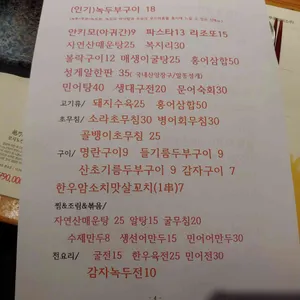 (인기)녹두부구이 18
안키모(아귀간)9 파스타13 리조또15
자연산매운탕25 복지리30
볼락구이12 매생이굴탕25 홍어삼합50
성게알한판 35
민어탕40 생대구전20 문어숙회30
고기류/ 돼지수육25 홍어삼합50
초무침/ 소라초무침30 병어회무침30
골뱅이초무침 25
구이/ 명란구이9 들기름두부구이 9
산초기름두부구이9 감자구이 7
한우암소치맛살꼬치(1串)7
찜&조림&볶음/
자연산매운탕 25 알탕15 굴무침20
수제만두8 생선어만두15 민어어만두30
전요리/ 굴전15 한우육전25 민어전30
감자녹두전10